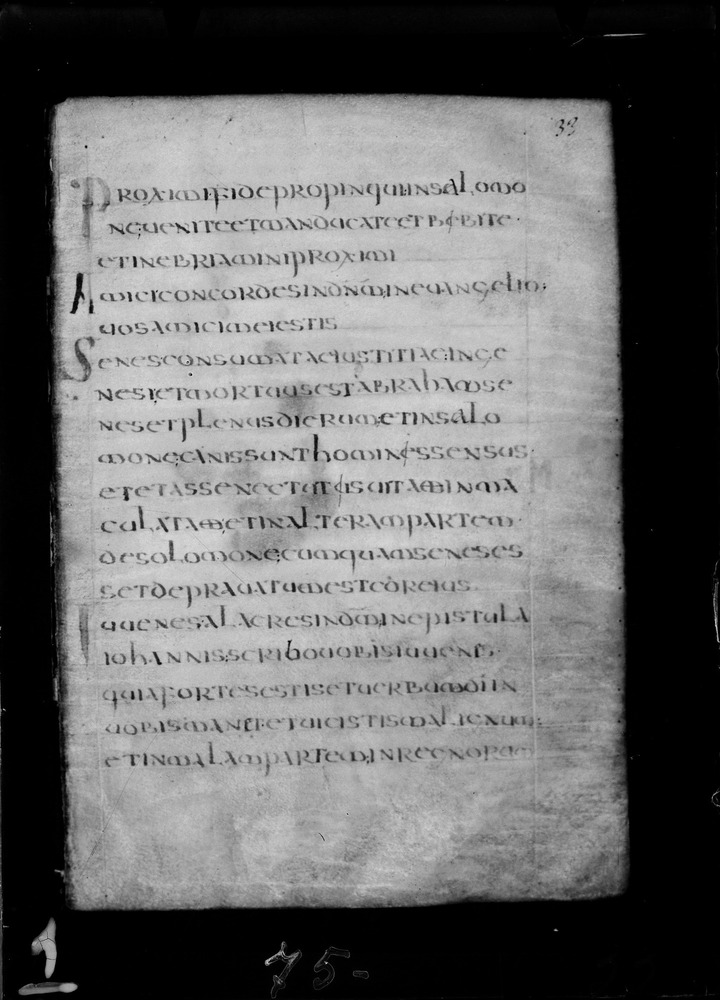 33
PROXIMIFIDEPROPINQUIINSALOMO
NEUENITEETMANDUCATEETBIBITE·
ETINEBRIAMINIPROXIMI
AMICICONCORDESINDNM̄INEUANGELIO;
UOSAMICIMEIESTIS
SENESCONSUMATAEIUSTITIAEINGE
NESIETMORTUUSESTABRAHAMSE
NESETPLENUSDIERUMETINSALO
MONECANISSUNTHOMINISSENSUS·
ETETASSENECTUTISUITAMINMA
CULATAMETINALTERAMPARTEM·
DESOLOMONECUMQUAMSENESES
SETDEPRAUATUMESTCOREIUS
IUUENESALACRESINDM̄INEPISTULA
IOHANNISSCRIBOUOBISIUUENES·
QUIAFORTESESTISETUERBUMDIIN
UOBISMANETETUICISTISMALIGNUM;
ETINMALAMPARTEMINREGNORUM
1
75-